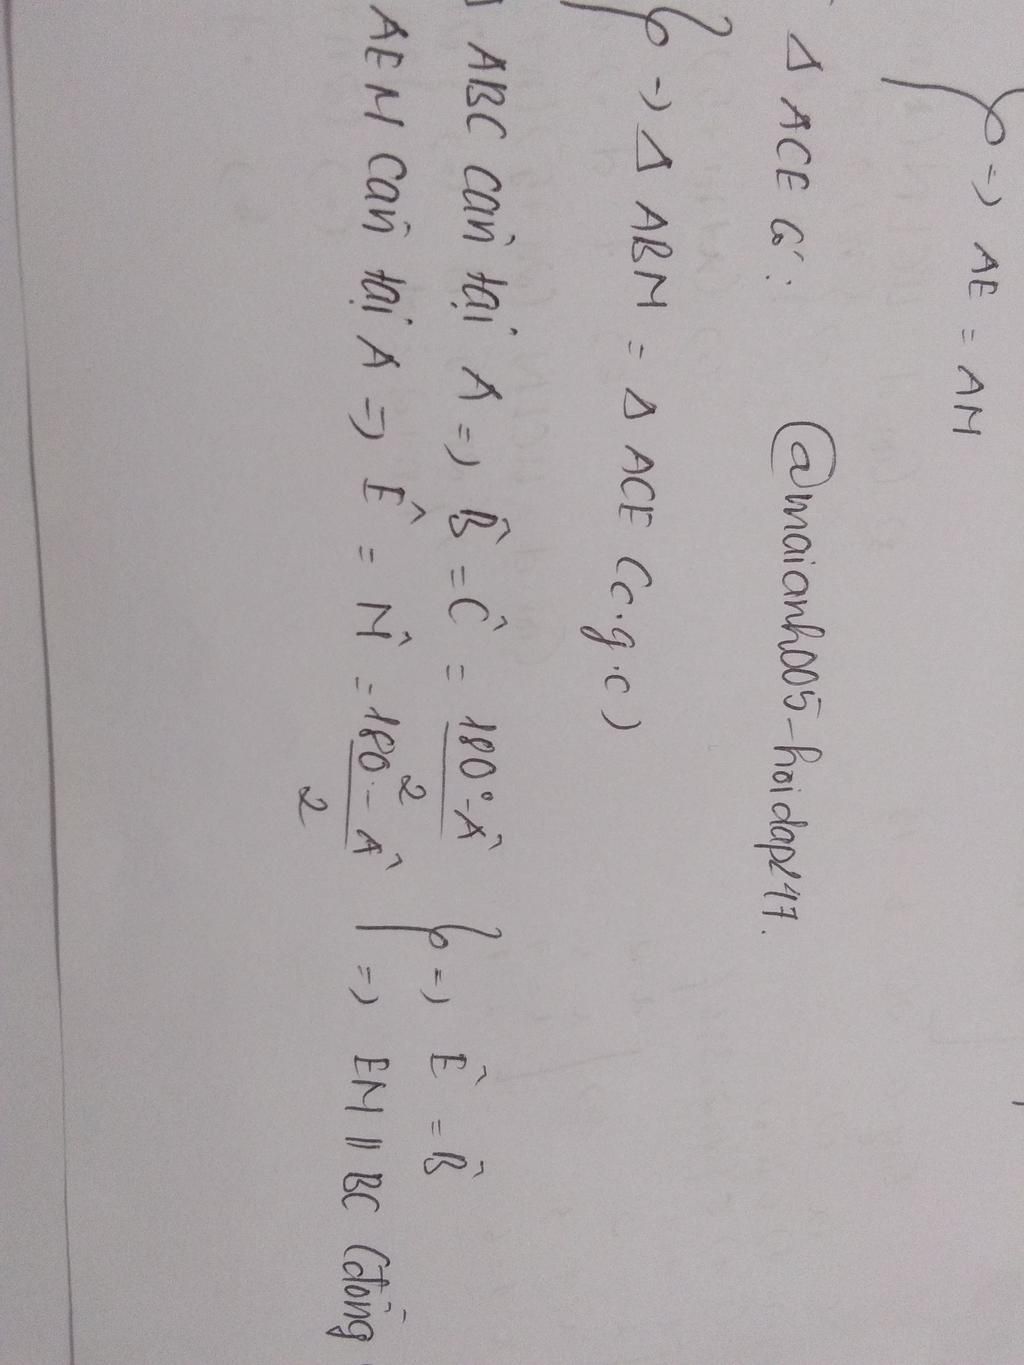 } => AE = AM
Δ ACE có :
@maianh005-hoidap247.
} => Δ ABM = Δ ACE (c.g.c)
Δ ABC cân tại A => B̂ = Ĉ = (180° - Â)/2 } => Ê = B̂
AEM cân tại A => Ê = M̂ = (180 - Â)/2 => EM || BC (đồng